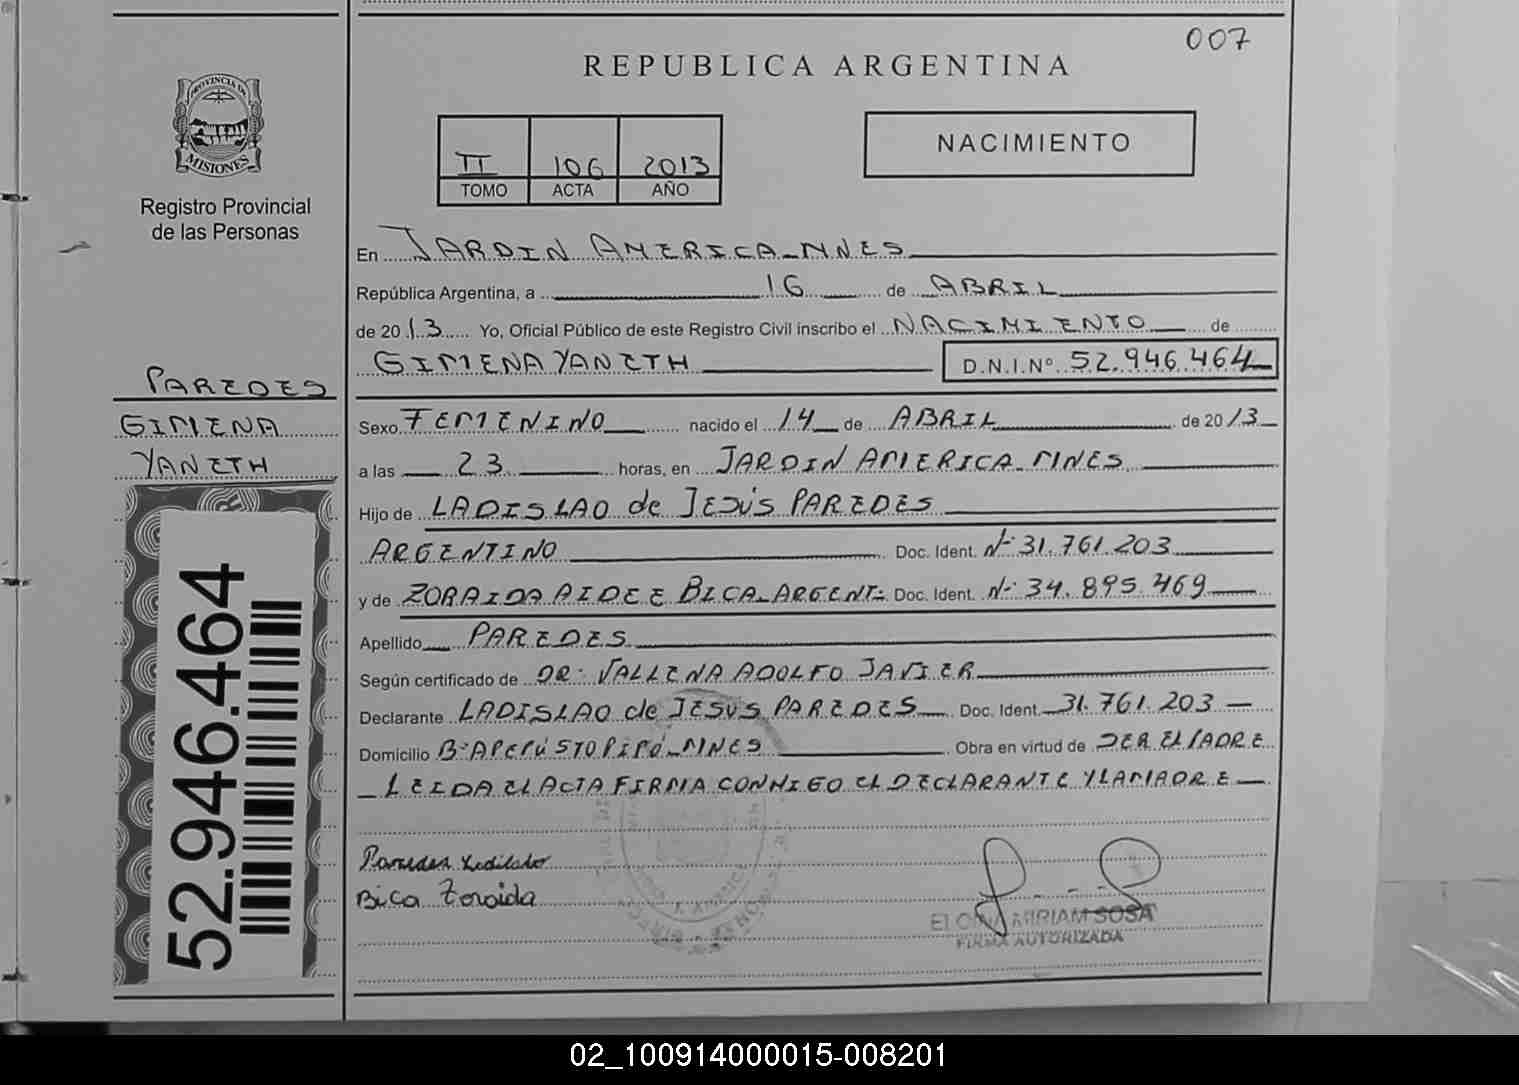 007
REPUBLICA ARGENTINA
PROVINCIA DE
MISIONES
Registro Provincial
de las Personas
II 106 2013
TOMO ACTA AÑO
NACIMIENTO
En JARDIN AMERICA-MNES
República Argentina, a 16 de ABRIL
de 2013 Yo, Oficial Público de este Registro Civil inscribo el NACIMIENTO de
GIMENA YANETH D.N.I.Nº 52.946.464
PAREDES
GIMENA
YANETH
Sexo FEMENINO nacido el 14 de ABRIL de 2013
a las 23 horas, en JARDIN AMERICA-MNES
Hijo de LADISLAO de JESÚS PAREDES
ARGENTINO Doc. Ident. Nº 31.761.203
y de ZORAIDA AIDEE BICA-ARGENT: Doc. Ident. Nº 34.895.469
Apellido PAREDES
Según certificado de DR. VALLENA ADOLFO JAVIER
Declarante LADISLAO de JESÚS PAREDES Doc. Ident. 31.761.203
Domicilio Bº APEPÚ STO PIPÓ-MNES Obra en virtud de SER EL PADRE
LEIDA EL ACTA FIRMA CONMIGO EL DECLARANTE Y LA MADRE
52.946.464
Paredes Ladislao
Bica Zoraida
MIRIAM SOSA
FIRMA AUTORIZADA
02_100914000015-008201